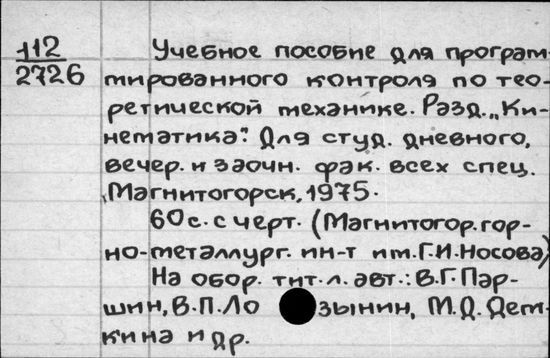 112
2726
Учебное пособие для програм-
мированного контроля по тео-
ретической механике. Разд. „Ки-
нематика". Для студ. дневного,
вечер. и заочн. фак. всех спец.
Магнитогорск, 1975.
60 с. с черт. (Магнитогор. гор-
но-металлург. ин-т им. Г.И. Носова)
На обор. тит. л. авт.: В.Г. Пар-
шин, В.П. Ло зынин, М.Д. Дем-
кина и др.